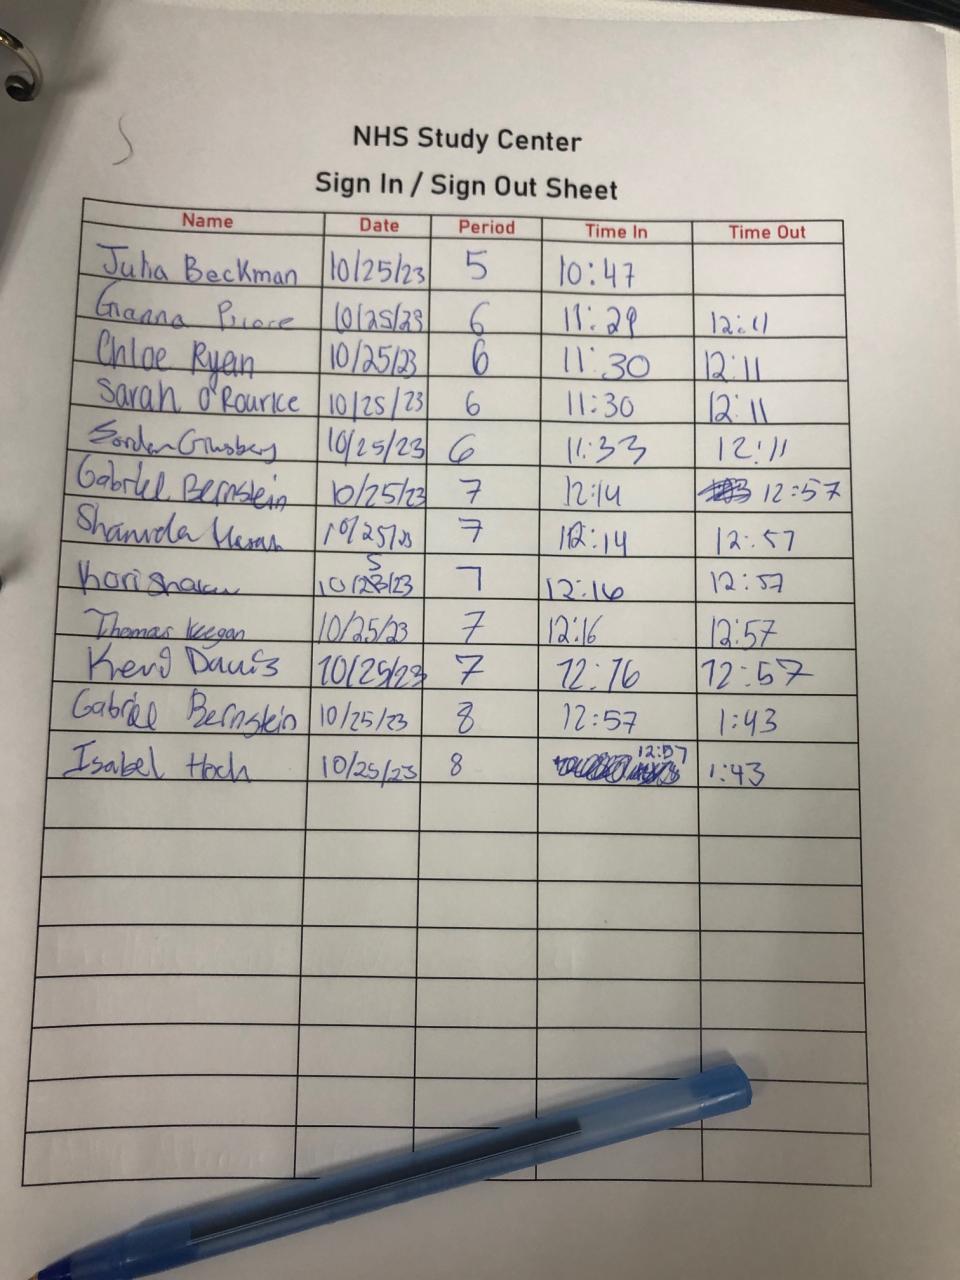 NHS Study Center
Sign In / Sign Out Sheet
Name Date Period Time In Time Out
Julia Beckman 10/25/23 5 10:47
Gianna 10/25/23 6 11:29 12:11
Chloe Ryan 10/25/23 6 11:30 12:11
Sarah O'Rourke 10/25/23 6 11:30 12:11
10/25/23 6 11:33 12:11
Gabriel Bernstein 10/25/23 7 12:14 12:57
10/25/23 7 12:14 12:57
Kori 10/25/23 7 12:16 12:57
Thomas Keegan 10/25/23 7 12:16 12:57
Davis 10/25/23 7 12:16 12:57
Gabriel Bernstein 10/25/23 8 12:57 1:43
Isabel Hoch 10/25/23 8 12:57 1:43